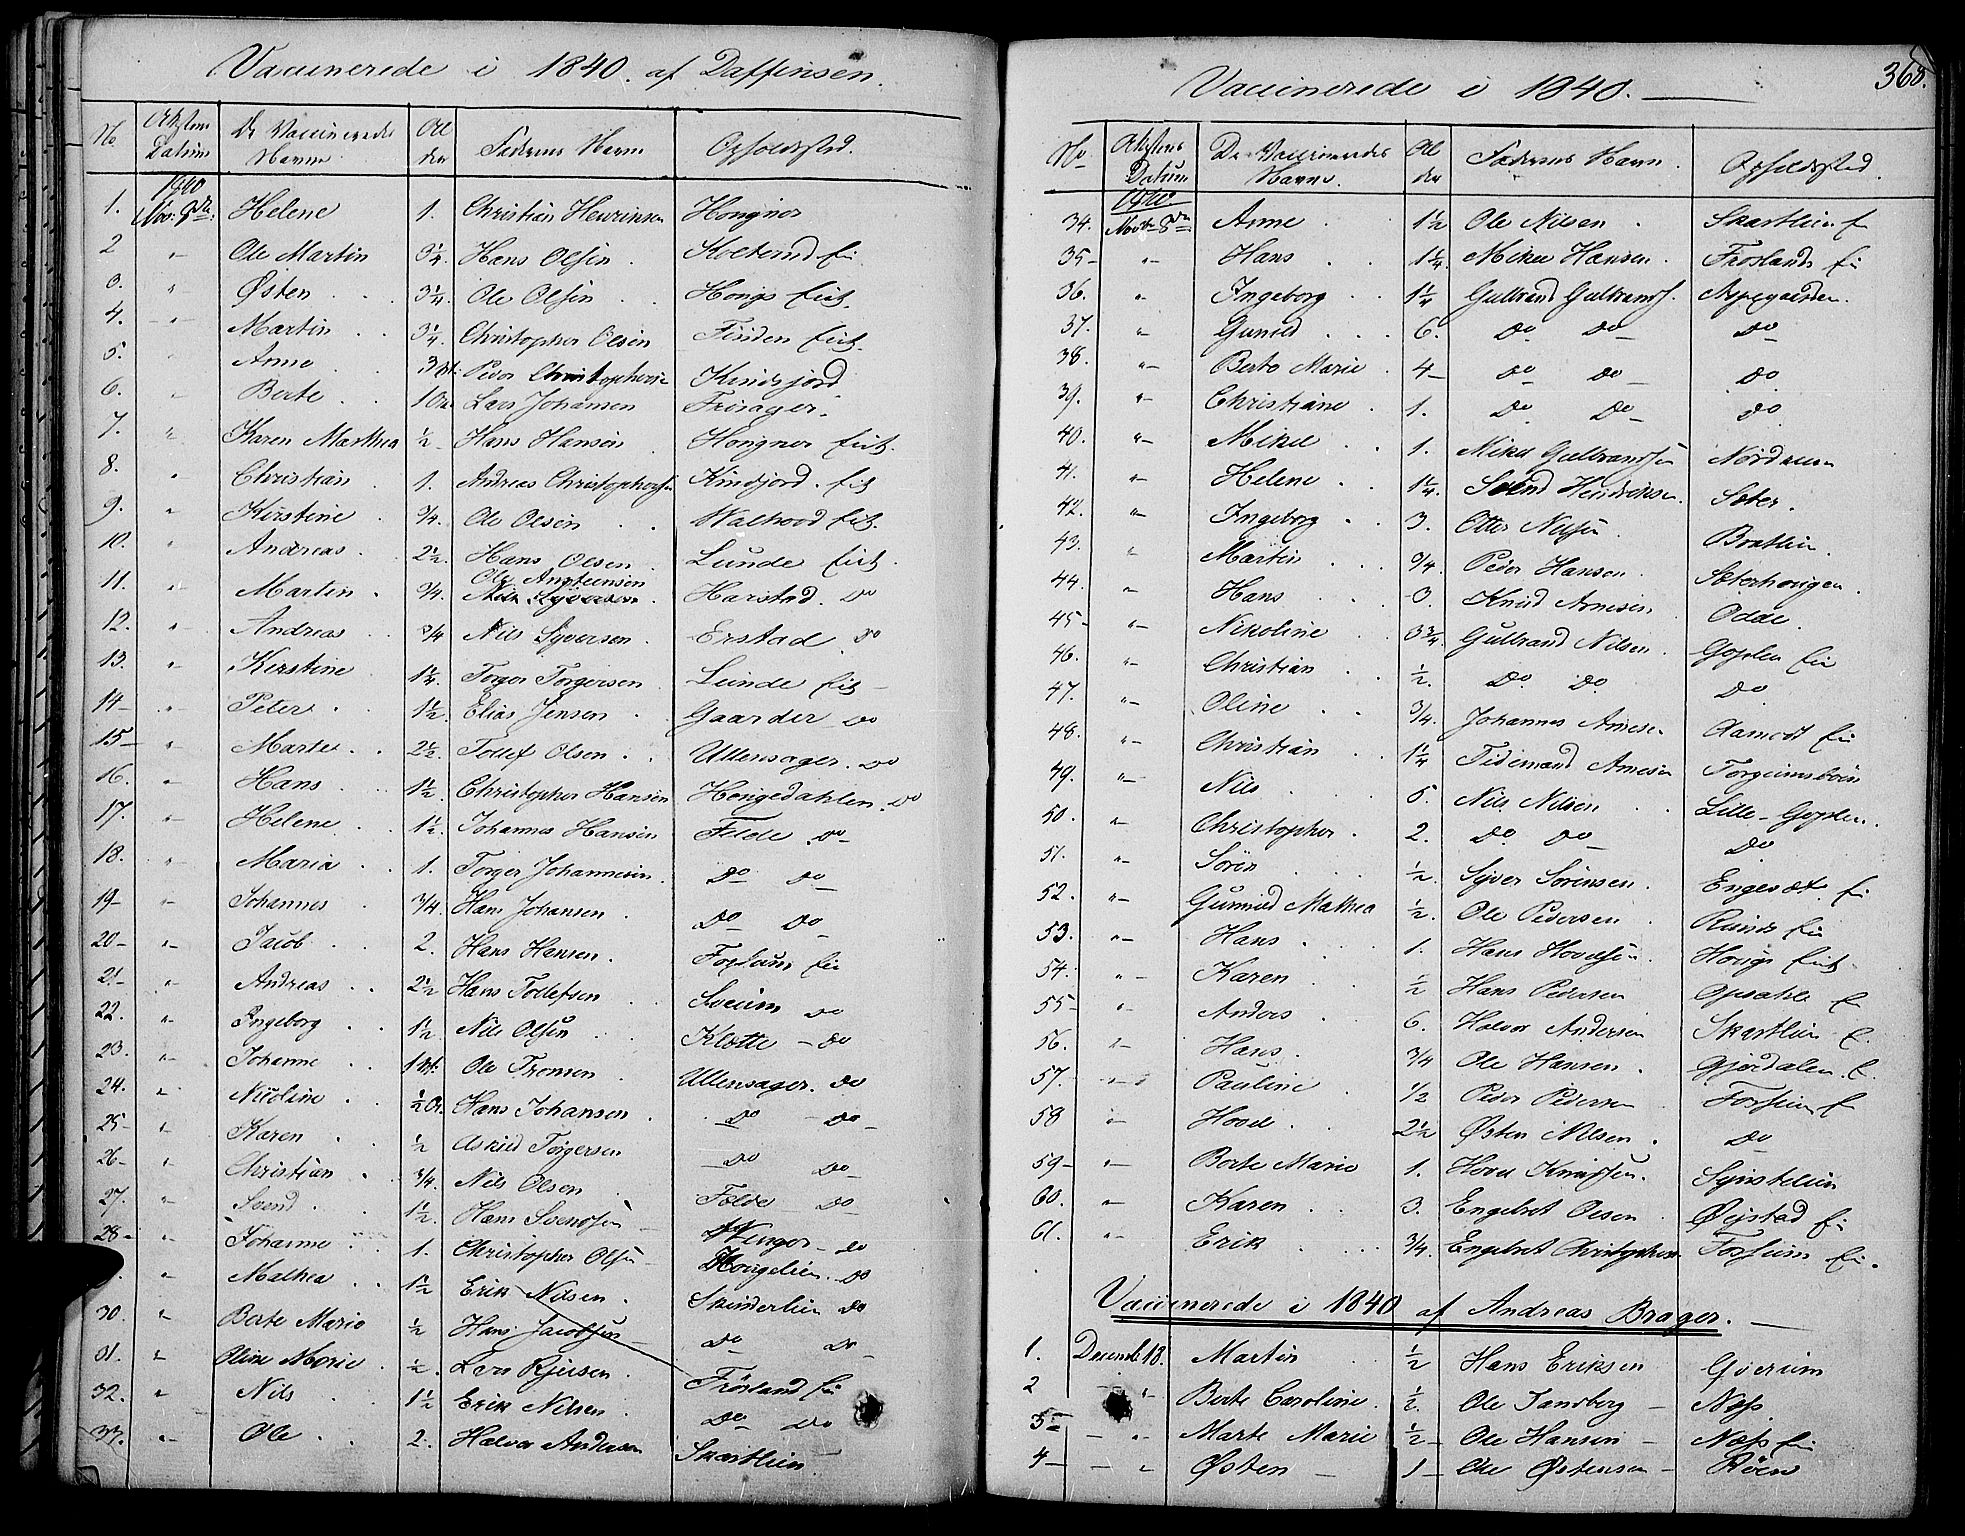 Vaccinerede i 1840. af Daffinsen.
No Attestens Datum De Vaccineredes Navne Alder Faderens Navn Opholdssted.
1840
1. Nov: 8de Helene 1. Christian Henriksen Hongner
2 " Ole Martin 3/4. Hans Olsen.
3. " Østen 3 1/4. Ole Olsen Hougs Eiet.
4. " Martin 3 1/4. Christopher Olsen Finden Eiet.
5. " Anne Peder Christophersen Kindsjord
6. " Berte Lars Johansen Frisager.
7. " Karen Marthea 1/2. Hans Hansen Hongner Eiet.
8. " Christian. 1. Andreas Christophersen Kindsjord. Eiet
9. " Kirstine 3/4. Ole Olsen Walhovd Eiet.
10. " Andreas. 2 1/2. Hans Olsen. Lunde Eiet.
Ole Amstensen
11. " Martin. 3/4. Nils Syversen. Harstad. Do
12. " Andreas 3/4 Nils Syversen. Erstad. Do
13. " Kirstine 1 1/4. Torger Torgersen Lunde Eiet
14 " Peter 1 1/2. Elias Jensen. Gaarder Do
15 " Marte. 2 1/2. Tollef Olsen. Ullensager. Do
16. " Hans 1 1/2. Christopher Hansen Hougedahlen. Do
17. " Helene 1 1/2. Johannes Hansen Felde. Do
18. " Maria 1. Torger Johannesen. Do Do
19 " Johannes 3/4. Hans Johansen. Do Do
20 " Jacob. 2. Hans Hansen.
21 " Andreas 2 1/2 Hans Tollefsen Sveum Do
22. " Ingeborg 1 1/2. Nils Olsen Klotte Do
23. " Johanne Ole Tronsen Ullensager. Do
24. " Nicoline Hans Johansen Do Do
25 " Karen 1/2 Askild Torgersen Do Do
26 " Christian 3/4. Nils Olsen Felde Do
27. " Svend 1 1/2. Hans Svendsen Wenger Do
28 " Johanne 1. Christopher Olsen Hougelien. Do
" Mathea 1 1/2 Erik Nilsen. Skinderlien Do
30. " Berte Marie 1/2 Hans Jacobsen Do Do
31. " Oline Marie. 1/2. Lars Frøsland Ei
32. " Nils 1 1/2 Erik Nilsen Do Do
33. " Ole 2. Halvor Andersen Skartlien
368.
Vaccinerede i 1840.
No. Attestens Datum De Vaccineredes Navne. Alder Faderens Navn. Opholdssted.
1840
34. Novbr 8de Anne 1 1/2 Ole Nilsen Skartlien E
35 " Hans 1 1/4. Mikel Hansen. Froslands Ei
36. " Ingeborg 1 1/4 Gulbrand Gulbrands. Aspegarden.
37. " Gunild 6. Do Do Do
38. " Berte Marie 4 Do Do Do
39. " Christiane 1. Do Do Do
40. " Mikel 1. Mikel Gulbrandsen
41. " Helene 1 1/4. Svend Hendriksen. Sæter.
42. " Ingeborg 3. Otter Nilsen. Bratlien.
43. " Martin 3/4. Peder Hansen. Sæterhougen.
44. " Hans 3. Knud Arnesen. Odde.
45 " Nikoline 3 3/4 Gulbrand Nilsen. Goplen Ei
46. " Christian 1/2. Do Do Do
47. " Oline 3/4. Johannes Arnesen Aamodt Ei
48. " Christian 1 1/4 Tidemand Arnesen
49. " Nils 5. Nils Nilsen Lille-Goplen.
50. " Christopher. 2. Do Do Do
51. " Søren 1/2. Syver Sørensen. Engesæt Ei
52. " Gunnild Mathea 1/2. Ole Pedersen. Runds Ei
53. " Hans. 1. Hans Hovelsen. Hougs Eiet
54. " Karen 1/2 Hans Pedersen Opsahls E
55 " Anders 6. Halvor Andersen Skartlien E.
56. " Hans. 3/4 Ole Hansen. Gjørdalen. E.
57. " Pauline 1/2 Peder Pedersen Forseim E
58 " Hovel 2 1/2 Østen Nilsen. Do
59 " Berte Marie 1. Hovel Knudsen. Synstelien
60. " Karen 3. Engebret Olsen Øijstad Ei
61. " Erik 3/4. Engebret Christophersen. Forseim Ei.
Vaccinerede i 1840 af Andreas Brager.
1. Decemb 18. Martin 1/2 Hans Eriksen Qverum
2 " Berte Caroline. 1/2. Ole Sandberg Næss
3 " Marte Marie 1/2 Ole Hansen Næss Ei
4 " Østen 1 Ole Østensen Røen